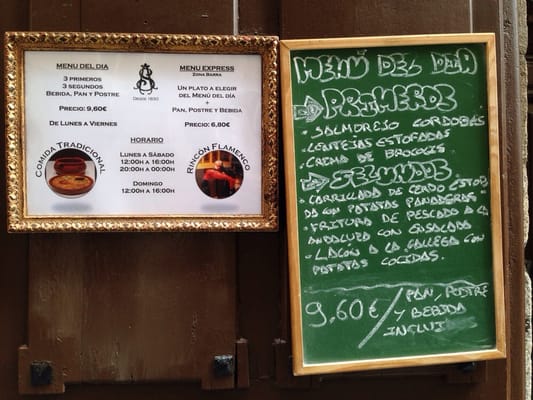 MENU DEL DIA
3 PRIMEROS
3 SEGUNDOS
BEBIDA, PAN Y POSTRE
PRECIO: 9,60€
DE LUNES A VIERNES
DESDE 1830
MENU EXPRESS
ZONA BARRA
UN PLATO A ELEGIR
DEL MENÚ DEL DÍA
+
PAN, POSTRE Y BEBIDA
PRECIO: 6,80€
COMIDA TRADICIONAL
HORARIO
LUNES A SÁBADO
12:00H A 16:00H
20:00H A 00:00H
DOMINGO
12:00H A 16:00H
RINCÓN FLAMENCO
MENÚ DEL DIA
PRIMEROS
• SALMOREJO CORDOBÉS
• LENTEJAS ESTOFADAS
• CREMA DE BROCOLIS
SEGUNDOS
• CARRILLADA DE CERDO ESTOFA
DA CON PATATAS PANADERAS
• FRITURA DE PESCADO A LA
ANDALUZA CON ENSALADA
• LACÓN A LA GALLEGA CON
PATATAS COCIDAS.
9,60€ / PAN, POSTRE
Y BEBIDA
INCLUI